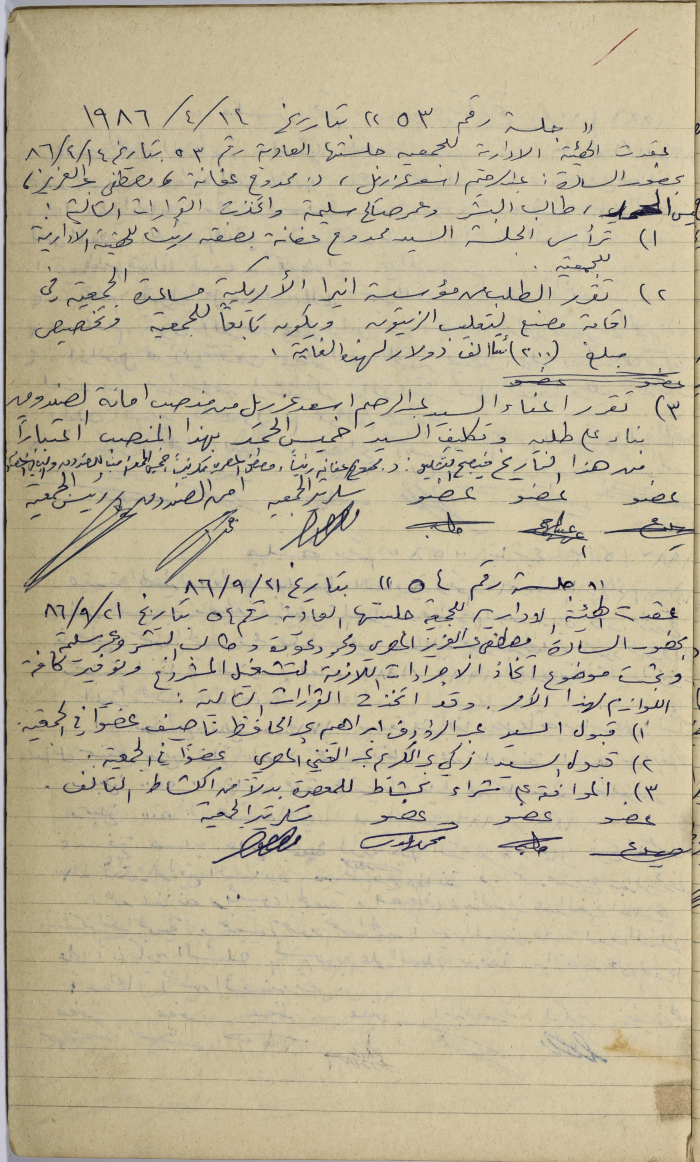 " جلسة رقم ٥٣ " بتاريخ ١٤/٤/١٩٨٦
عقدت الهيئة الادارية للجمعيه جلستها العادية رقم ٥٣ بتاريخ ١٤/٢/٨٦
بحضور السادة : عبدالرحيم اسعد ، د. ممدوح عفانة ، مصطفى عبدالعزيز ،
، طالب البشر وعمر صالح سليمة واتخذت القرارات التالية :
١) ترأس الجلسة السيد ممدوح عفانة بصفته رئيسا للهيئة الادارية
للجمعية .
٢) تقرر الطلب من مؤسسة انيرا الأمريكية مساعدة الجمعية في
اقامة مصنع لتعليب الزيتون ويكون تابعاً للجمعية وتخصيص
مبلغ (٢٠٠٠) الف دولار لهذه الغاية .
عضو عضو
٣) تقرر اعفاء السيد عبدالرحيم اسعد من منصب امانة الصندوق
بناء على طلبه وتكليف السيد خميس الحمد بهذا المنصب اعتباراً
من هذا التاريخ فيصبح التشكيل : د. ممدوح عفانه رئيساً ، مصطفى المصري سكرتيراً ، خميس الحمد اميناً للصندوق
عضو عضو عضو سكرتير الجمعية امين الصندوق رئيس الجمعية
" جلسة رقم ٥٤ " بتاريخ ٢١/٩/٨٦
عقدت الهيئة الادارية للجمعية جلستها العادية رقم ٥٤ بتاريخ ٢١/٩/٨٦
بحضور السادة / مصطفى عبدالعزيز المصري و وطالب البشر وعمر سليمة
وبحثت موضوع اتخاذ الاجراءات اللازمة لتشغيل المشروع وتوفير كافة
اللوازم لهذا الأمر . وقد اتخذت القرارات التالية :
١) قبول السيد عبدالرؤوف ابراهيم عبدالحافظ ناصيف عضواً في الجمعية .
٢) قبول السيد زكي عبدالكريم عبدالغني المصري عضواً في الجمعية .
٣) الموافقة على شراء كشاط للمعصرة بدلاً من الكشاط التالف .
عضو عضو عضو سكرتير الجمعية